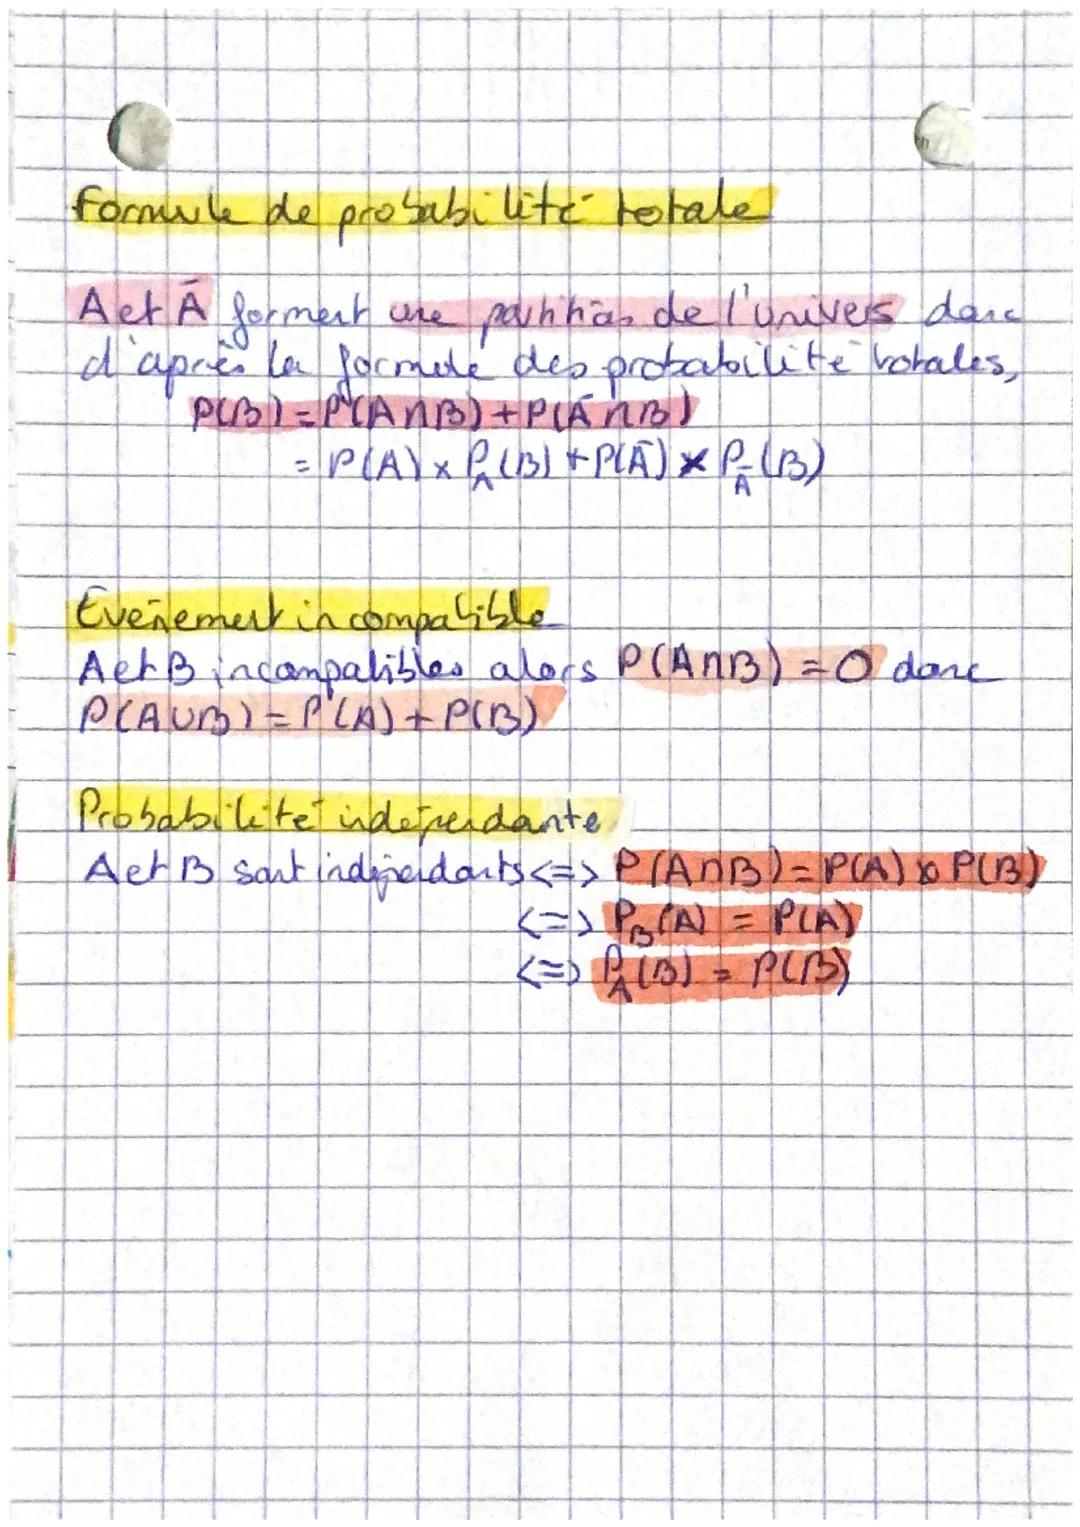 Formule de probabilité totale
A et Ā forment une partition de l'univers donc
d'après la formule des probabilité totales,
P(B) = P(A∩B) + P(Ā∩B)
= P(A) × P_A(B) + P(Ā) × P_Ā(B)
Evenement incompatible
A et B incompatibles alors P(A∩B) = 0 donc
P(A∪B) = P(A) + P(B)
Probabilité indépendante
A et B sont indépendants <=> P(A∩B) = P(A) × P(B)
<=> P_B(A) = P(A)
<=> P_A(B) = P(B)